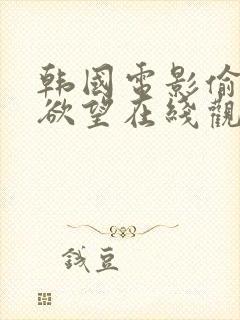 韩國电影偷
欲望在綫觀
錢豆